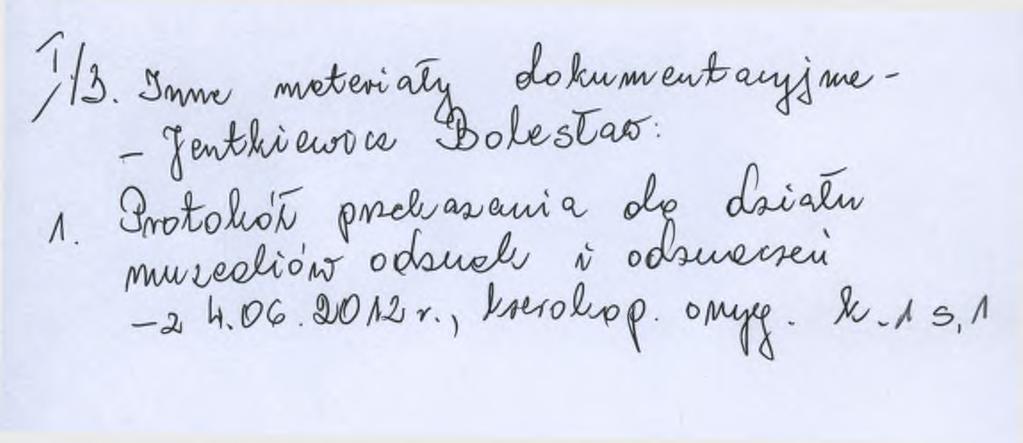 I/3. Inne materiały dokumentacyjne -
- Jentkiewicz Bolesław:
1. Protokół przekazania do działu
muzealiów odznak i odznaczeń
- z 4.06.2012 r., kserokop. oryg. k. 1 s, 1